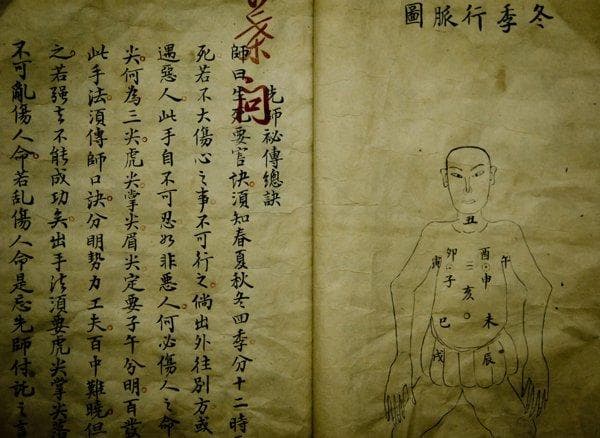 冬季行脈圖
丑
酉
卯
午
申
三
子
寅
亥
未
巳
辰
戌
葉問
先師祕傳總訣
師曰生死要官訣須知春夏秋冬四季分十二時
死若不大傷心之事不可行之倘出外往別方或
遇惡人此手自不可忍如非惡人何必傷人之命
尖何為三尖虎尖掌尖眉尖定要子午分明百發
此手法須傳師口訣分明勢力工夫百中難曉但
之若强言不能成功矣出手法須要虎尖掌尖落
不可亂傷人命若乱傷人命是忘先師付託之言